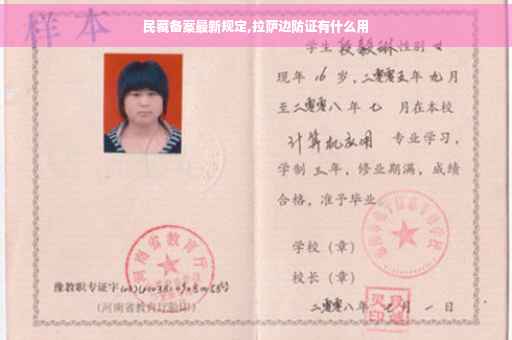 民宿备案最新规定,拉萨边防证有什么用
样本
学生段毅琳性别女
现年16岁,二零零五年九月
至二零零八年七月在本校
计算机应用专业学习,
学制三年,修业期满,成绩
合格,准予毕业。
学校(章)
校长(章)
二零零八年七月一日
河南省教育厅
豫教职专证字
(河南省教育厅验印)